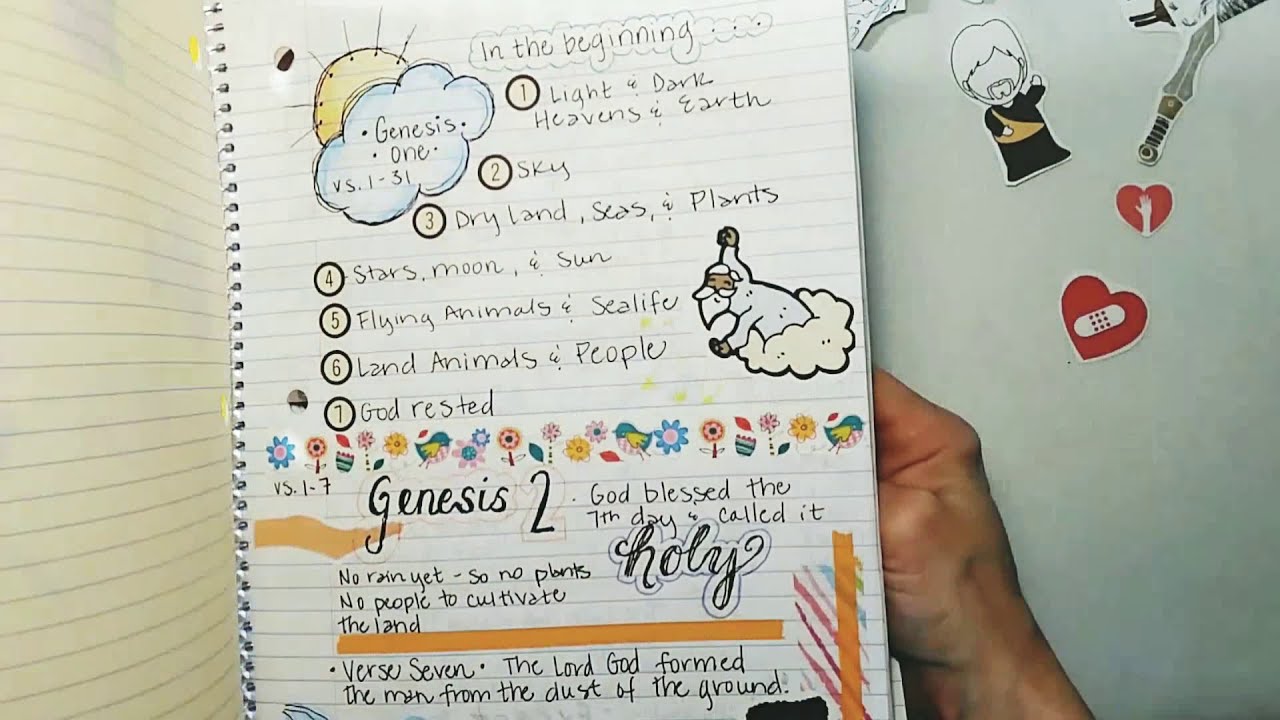 In the beginning....
• Genesis •
• One •
vs. 1-31
1 Light & Dark
Heavens & Earth
2 Sky
3 Dry land, Seas, & Plants
4 Stars, moon, & Sun
5 Flying Animals & Sealife
6 Land Animals & People
7 God rested
vs. 1-7
Genesis 2
• God blessed the
7th day & called it
holy
No rain yet - so no plants
No people to cultivate
the land
• Verse Seven • The Lord God formed
the man from the dust of the ground.